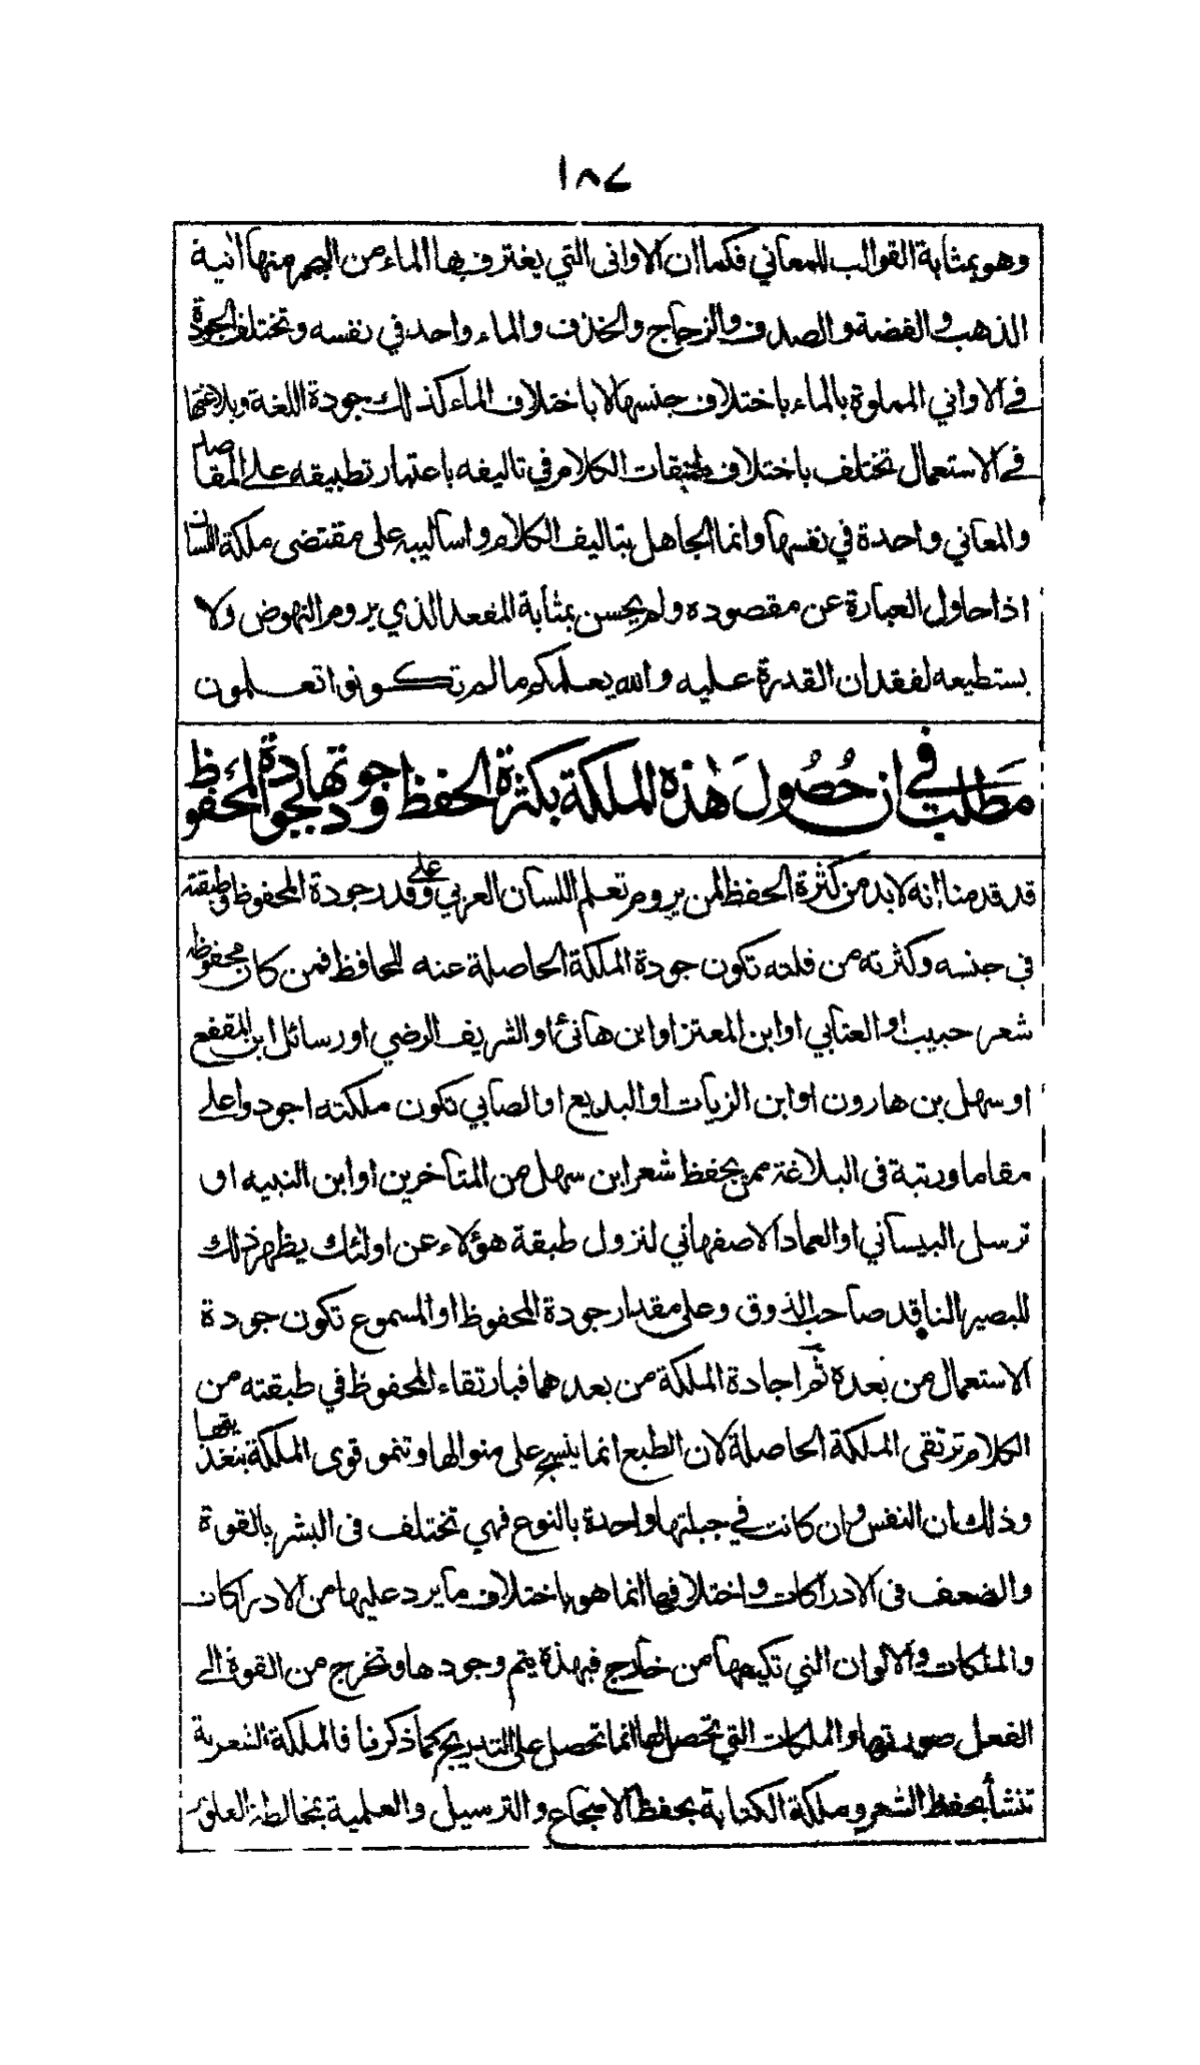 ١٨٤
وهو بمثابة القوالب للمعاني فكما ان الاوانى التي يغترف بها الماء من البحر منها آنية
الذهب والفضة والصدف والزجاج والخزف والماء واحد في نفسه وتختلف الجودة
في الاواني المملوة بالماء باختلاف جنسها لا باختلاف الماء كذلك جودة اللغة وبلاغتها
في الاستعمال تختلف باختلاف طبقات الكلام في تاليفه باعتبار تطبيقه على المقاصد
والمعاني واحدة في نفسها وانما الجاهل بتاليف الكلام واساليبه على مقتضى ملكة اللسان
اذا حاول العبارة عن مقصوده ولم يحسن بمثابة المقعد الذي يروم النهوض ولا
يستطيعه لفقدان القدرة عليه والله يعلمكم ما لم تكونوا تعلمون
مطلب في ان حصول هذه الملكة بكثرة الحفظ وجودتها بجودة المحفوظ
قد قدمنا انه لابد من كثرة الحفظ لمن يروم تعلم اللسان العربي وعلى قدر جودة المحفوظ وطبقته
في جنسه وكثرته من قلته تكون جودة الملكة الحاصلة عنه للحافظ فمن كان محفوظه
شعر حبيب او العتابي او ابن المعتز او ابن هانئ او الشريف الرضي او رسائل ابن المقفع
او سهل بن هارون او ابن الزيات او البديع او الصابي تكون ملكته اجود واعلى
مقاما ورتبة في البلاغة ممن يحفظ شعر ابن سهل من المتأخرين او ابن النبيه او
ترسل البيساني او العماد الاصفهاني لنزول طبقة هؤلاء عن اولئك يظهر ذلك
للبصير الناقد صاحب الذوق وعلى مقدار جودة المحفوظ او المسموع تكون جودة
الاستعمال من بعده ثم اجادة الملكة من بعدهما فبارتقاء المحفوظ في طبقته من
الكلام ترتقى الملكة الحاصلة لان الطبع انما ينسج على منوالها وتنمو قوى الملكة بتغذيتها
وذلك ان النفس وان كانت في جبلتها واحدة بالنوع فهي تختلف في البشر بالقوة
والضعف في الادراكات واختلافها انما هو باختلاف ما يرد عليها من الادراكات
والملكات والالوان التي تكيفها من خارج فبهذه يتم وجودها وتخرج من القوة الى
الفعل صورتها والملكات التي تحصل لها انما تحصل على التدريج كما ذكرنا فالملكة الشعرية
تنشأ بحفظ الشعر وملكة الكتابة بحفظ الاسجاع والترسيل والعلمية بمخالطة العلوم